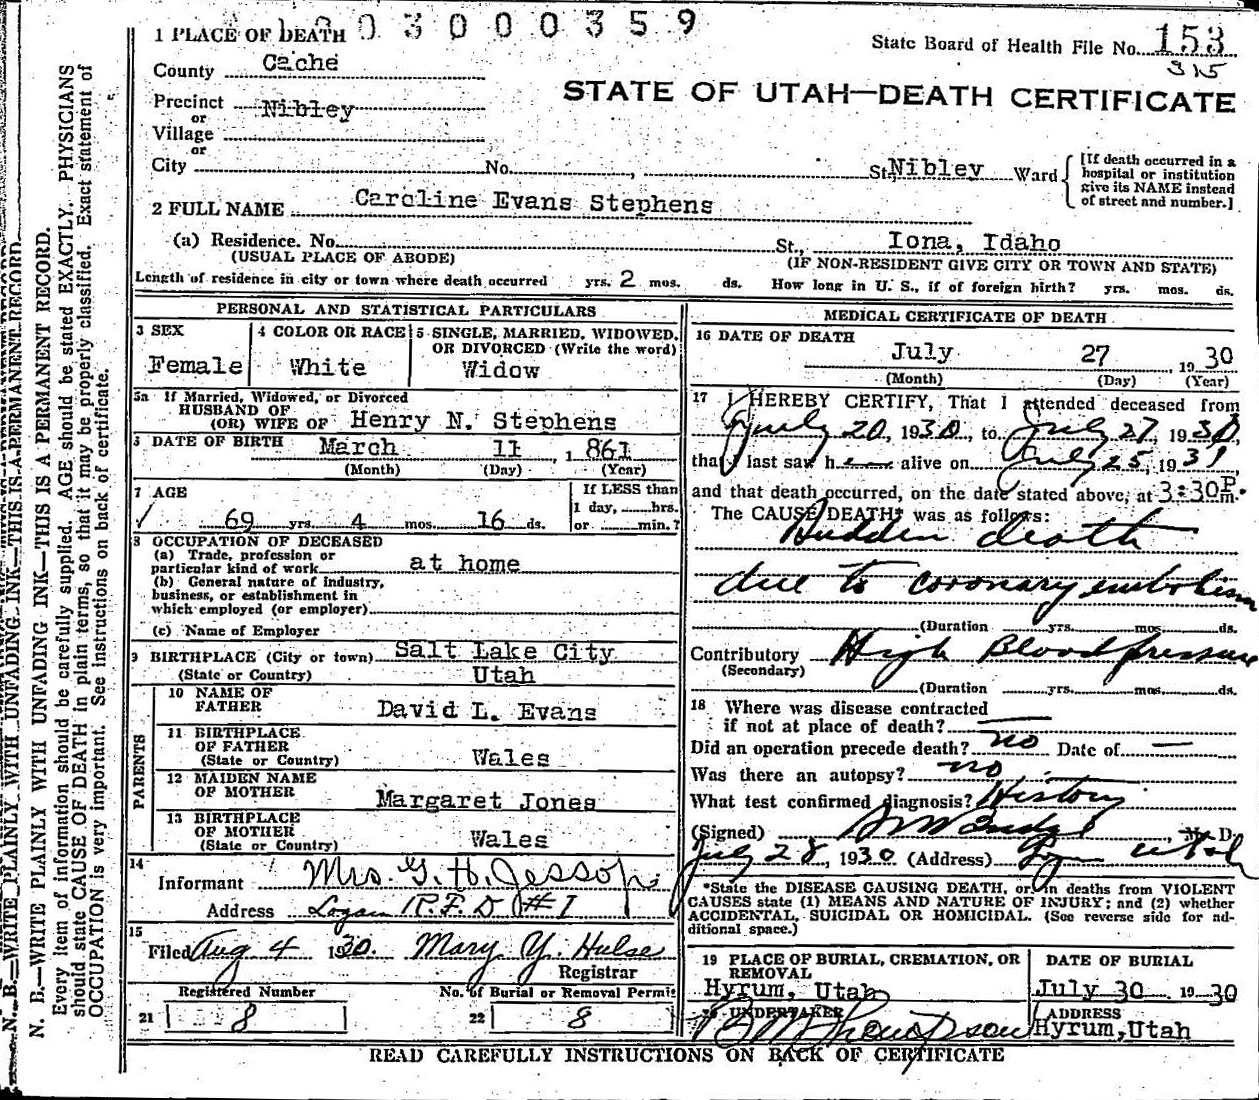 03000359
1 PLACE OF DEATH
State Board of Health File No. 153
315
County Cache
STATE OF UTAH—DEATH CERTIFICATE
Precinct Nibley
or
Village
or
City No. , St. Nibley Ward
[If death occurred in a hospital or institution give its NAME instead of street and number.]
2 FULL NAME Caroline Evans Stephens
(a) Residence. No. St., Iona, Idaho
(USUAL PLACE OF ABODE) (IF NON-RESIDENT GIVE CITY OR TOWN AND STATE)
Length of residence in city or town where death occurred yrs. 2 mos. ds. How long in U. S., if of foreign birth? yrs. mos. ds.
PERSONAL AND STATISTICAL PARTICULARS
3 SEX
Female
4 COLOR OR RACE
White
5 SINGLE, MARRIED, WIDOWED,
OR DIVORCED (Write the word)
Widow
5a If Married, Widowed, or Divorced
HUSBAND OF
(OR) WIFE OF Henry N. Stephens
DATE OF BIRTH March 11, 1861
(Month) (Day) (Year)
7 AGE
69 yrs. 4 mos. 16 ds.
If LESS than
1 day, hrs.
or min.?
8 OCCUPATION OF DECEASED
(a) Trade, profession or
particular kind of work at home
(b) General nature of industry,
business, or establishment in
which employed (or employer)
(c) Name of Employer
9 BIRTHPLACE (City or town) Salt Lake City
(State or Country) Utah
PARENTS
10 NAME OF
FATHER David L. Evans
11 BIRTHPLACE
OF FATHER
(State or Country) Wales
12 MAIDEN NAME
OF MOTHER Margaret Jones
13 BIRTHPLACE
OF MOTHER
(State or Country) Wales
14
Informant Mrs. G. H. Jessop
Address Logan R.F.D #1
15
Filed Aug 4 1930. Mary Y. Hulse
Registrar
Registered Number No. of Burial or Removal Permit
21 8 22 8
MEDICAL CERTIFICATE OF DEATH
16 DATE OF DEATH
July 27 1930
(Month) (Day) (Year)
17 I HEREBY CERTIFY, That I attended deceased from
July 20, 1930, to July 27, 1930,
that I last saw her alive on July 25, 1931
and that death occurred, on the date stated above, at 3:30P.m.
The CAUSE DEATH* was as follows:
Sudden death
due to coronary embolism
(Duration yrs. mos. ds.
Contributory High Blood pressure
(Secondary)
(Duration yrs. mos. ds.
18 Where was disease contracted
if not at place of death?
Did an operation precede death? no Date of —
Was there an autopsy? no
What test confirmed diagnosis? History
(Signed) , M. D.
July 28, 1930 (Address) Logan Utah
*State the DISEASE CAUSING DEATH, or, in deaths from VIOLENT
CAUSES state (1) MEANS AND NATURE OF INJURY; and (2) whether
ACCIDENTAL, SUICIDAL OR HOMICIDAL. (See reverse side for ad-
ditional space.)
19 PLACE OF BURIAL, CREMATION, OR
REMOVAL
Hyrum, Utah
DATE OF BURIAL
July 30 1930
20 UNDERTAKER
Thompson
ADDRESS
Hyrum, Utah
READ CAREFULLY INSTRUCTIONS ON BACK OF CERTIFICATE
N. B.—WRITE PLAINLY WITH UNFADING INK—THIS IS A PERMANENT RECORD
N. B.—WRITE PLAINLY WITH UNFADING INK—THIS IS A PERMANENT RECORD.
Every item of information should be carefully supplied. AGE should be stated EXACTLY. PHYSICIANS
should state CAUSE OF DEATH in plain terms, so that it may be properly classified. Exact statement of
OCCUPATION is very important. See instructions on back of certificate.